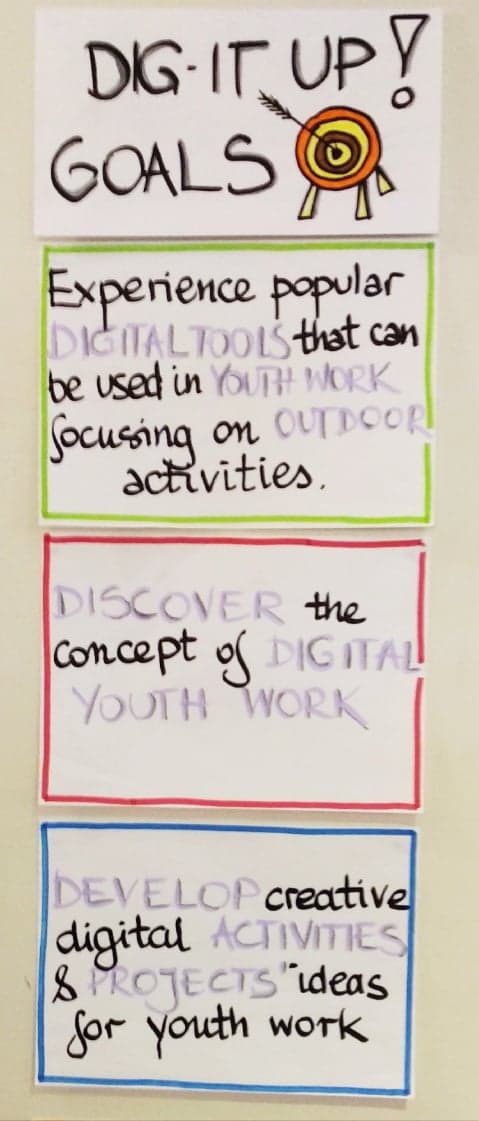 DIG-IT UP!
GOALS
Experience popular
DIGITAL TOOLS that can
be used in YOUTH WORK
focusing on OUTDOOR
activities.
DISCOVER the
concept of DIGITAL
YOUTH WORK
DEVELOP creative
digital ACTIVITIES
& PROJECTS" ideas
for youth work